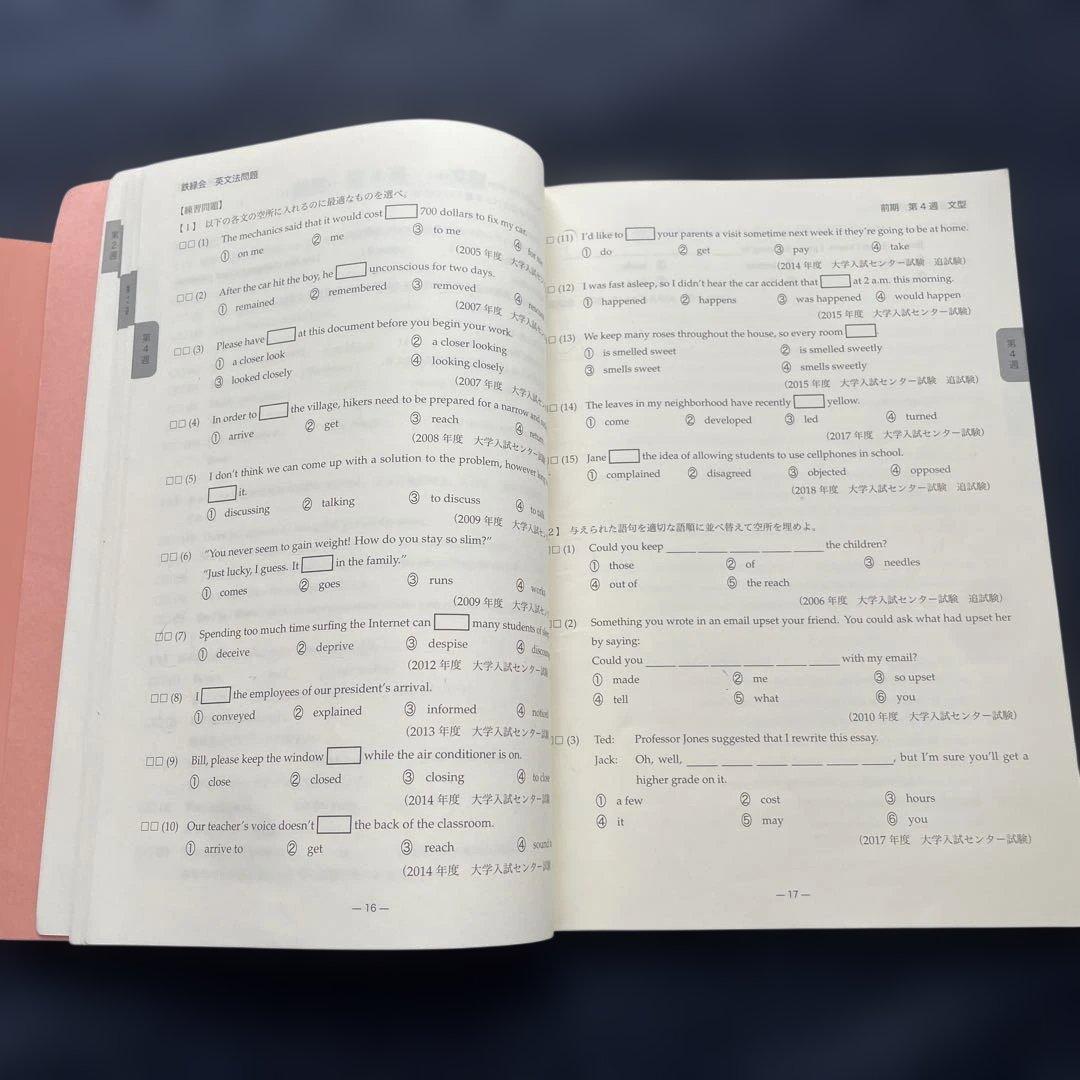 鉄緑会 英文法問題
【練習問題】
【1】 以下の各文の空所に入れるのに最適なものを選べ。
□□ (1) The mechanics said that it would cost 700 dollars to fix my car.
① on me ② me ③ to me ④
(2005 年度 大学入試セン
□□ (2) After the car hit the boy, he unconscious for two days.
① remained ② remembered ③ removed ④
(2007 年度 大学入試セン
□□ (3) Please have at this document before you begin your work.
① a closer look ② a closer looking
③ looked closely ④ looking closely
(2007 年度 大学入試セン
□□ (4) In order to the village, hikers need to be prepared for a narrow and
① arrive ② get ③ reach ④
(2008 年度 大学入試センター
□□ (5) I don't think we can come up with a solution to the problem, however
it.
① discussing ② talking ③ to discuss ④ to
(2009 年度 大学入試セン
□□ (6) "You never seem to gain weight! How do you stay so slim?"
"Just lucky, I guess. It in the family."
① comes ② goes ③ runs ④ works
(2009 年度 大学入試セン
□□ (7) Spending too much time surfing the Internet can many students of
① deceive ② deprive ③ despise ④
(2012 年度 大学入試センター
□□ (8) I the employees of our president's arrival.
① conveyed ② explained ③ informed ④
(2013 年度 大学入試センター
□□ (9) Bill, please keep the window while the air conditioner is on.
① close ② closed ③ closing ④ to close
(2014 年度 大学入試センター
□□ (10) Our teacher's voice doesn't the back of the classroom.
① arrive to ② get ③ reach ④ sound
(2014 年度 大学入試センター
— 16 —
前期 第 4 週 文型
□ (11) I'd like to your parents a visit sometime next week if they're going to be at home.
① do ② get ③ pay ④ take
(2014 年度 大学入試センター試験 追試験)
□ (12) I was fast asleep, so I didn't hear the car accident that at 2 a.m. this morning.
① happened ② happens ③ was happened ④ would happen
(2015 年度 大学入試センター試験)
□ (13) We keep many roses throughout the house, so every room .
① is smelled sweet ② is smelled sweetly
③ smells sweet ④ smells sweetly
(2015 年度 大学入試センター試験 追試験)
□ (14) The leaves in my neighborhood have recently yellow.
① come ② developed ③ led ④ turned
(2017 年度 大学入試センター試験)
□ (15) Jane the idea of allowing students to use cellphones in school.
① complained ② disagreed ③ objected ④ opposed
(2018 年度 大学入試センター試験 追試験)
2】 与えられた語句を適切な語順に並べ替えて空所を埋めよ。
□ (1) Could you keep ____ ____ ____ ____ ____ the children?
① those ② of ③ needles
④ out of ⑤ the reach
(2006 年度 大学入試センター試験 追試験)
□ (2) Something you wrote in an email upset your friend. You could ask what had upset her
by saying:
Could you ____ ____ ____ ____ ____ ____ with my email?
① made ② me ③ so upset
④ tell ⑤ what ⑥ you
(2010 年度 大学入試センター試験)
□ (3) Ted: Professor Jones suggested that I rewrite this essay.
Jack: Oh, well, ____ ____ ____ ____ ____ ____, but I'm sure you'll get a
higher grade on it.
① a few ② cost ③ hours
④ it ⑤ may ⑥ you
(2017 年度 大学入試センター試験)
— 17 —
第2週
第4週
第4週